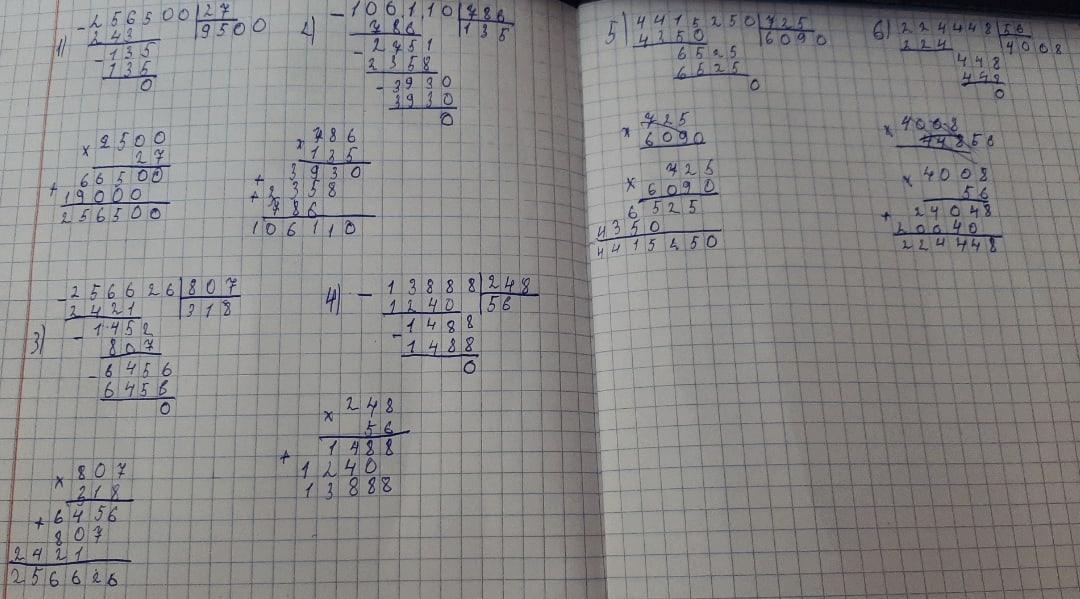 1) - 256500 | 27
243 | 9500
- 135
135
0
× 9500
27
+ 66500
19000
256500
2) - 106110 | 786
786 | 135
- 2751
2358
- 3930
3930
0
× 786
135
+ 3930
+ 2358
786
106110
3) - 256626 | 807
2421 | 318
- 1452
807
- 6456
6456
0
× 807
318
+ 6456
807
2421
256626
4) - 13888 | 248
1240 | 56
- 1488
1488
0
× 248
56
+ 1488
1240
13888
5) 4415250 | 725
4350 | 6090
6525
6525
0
× 725
6090
× 725
6090
6525
4350
4415250
6) 224448 | 56
224 | 4008
448
448
0
× 4008
56
× 4008
56
+ 24048
20040
224448